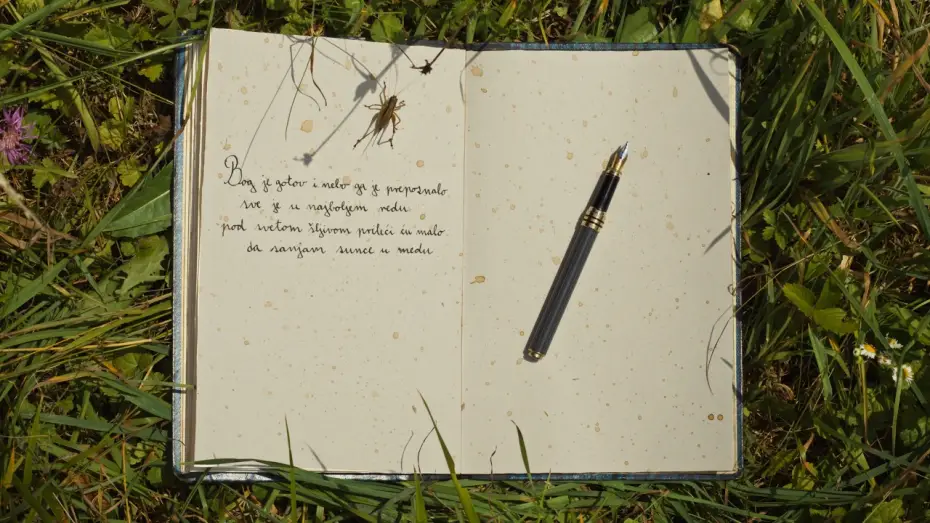 Bog je gotov i nebo ga je prepoznalo
sve je u najboljem redu
pod svetom šljivom prileći ću malo
da sanjam sunce u medu